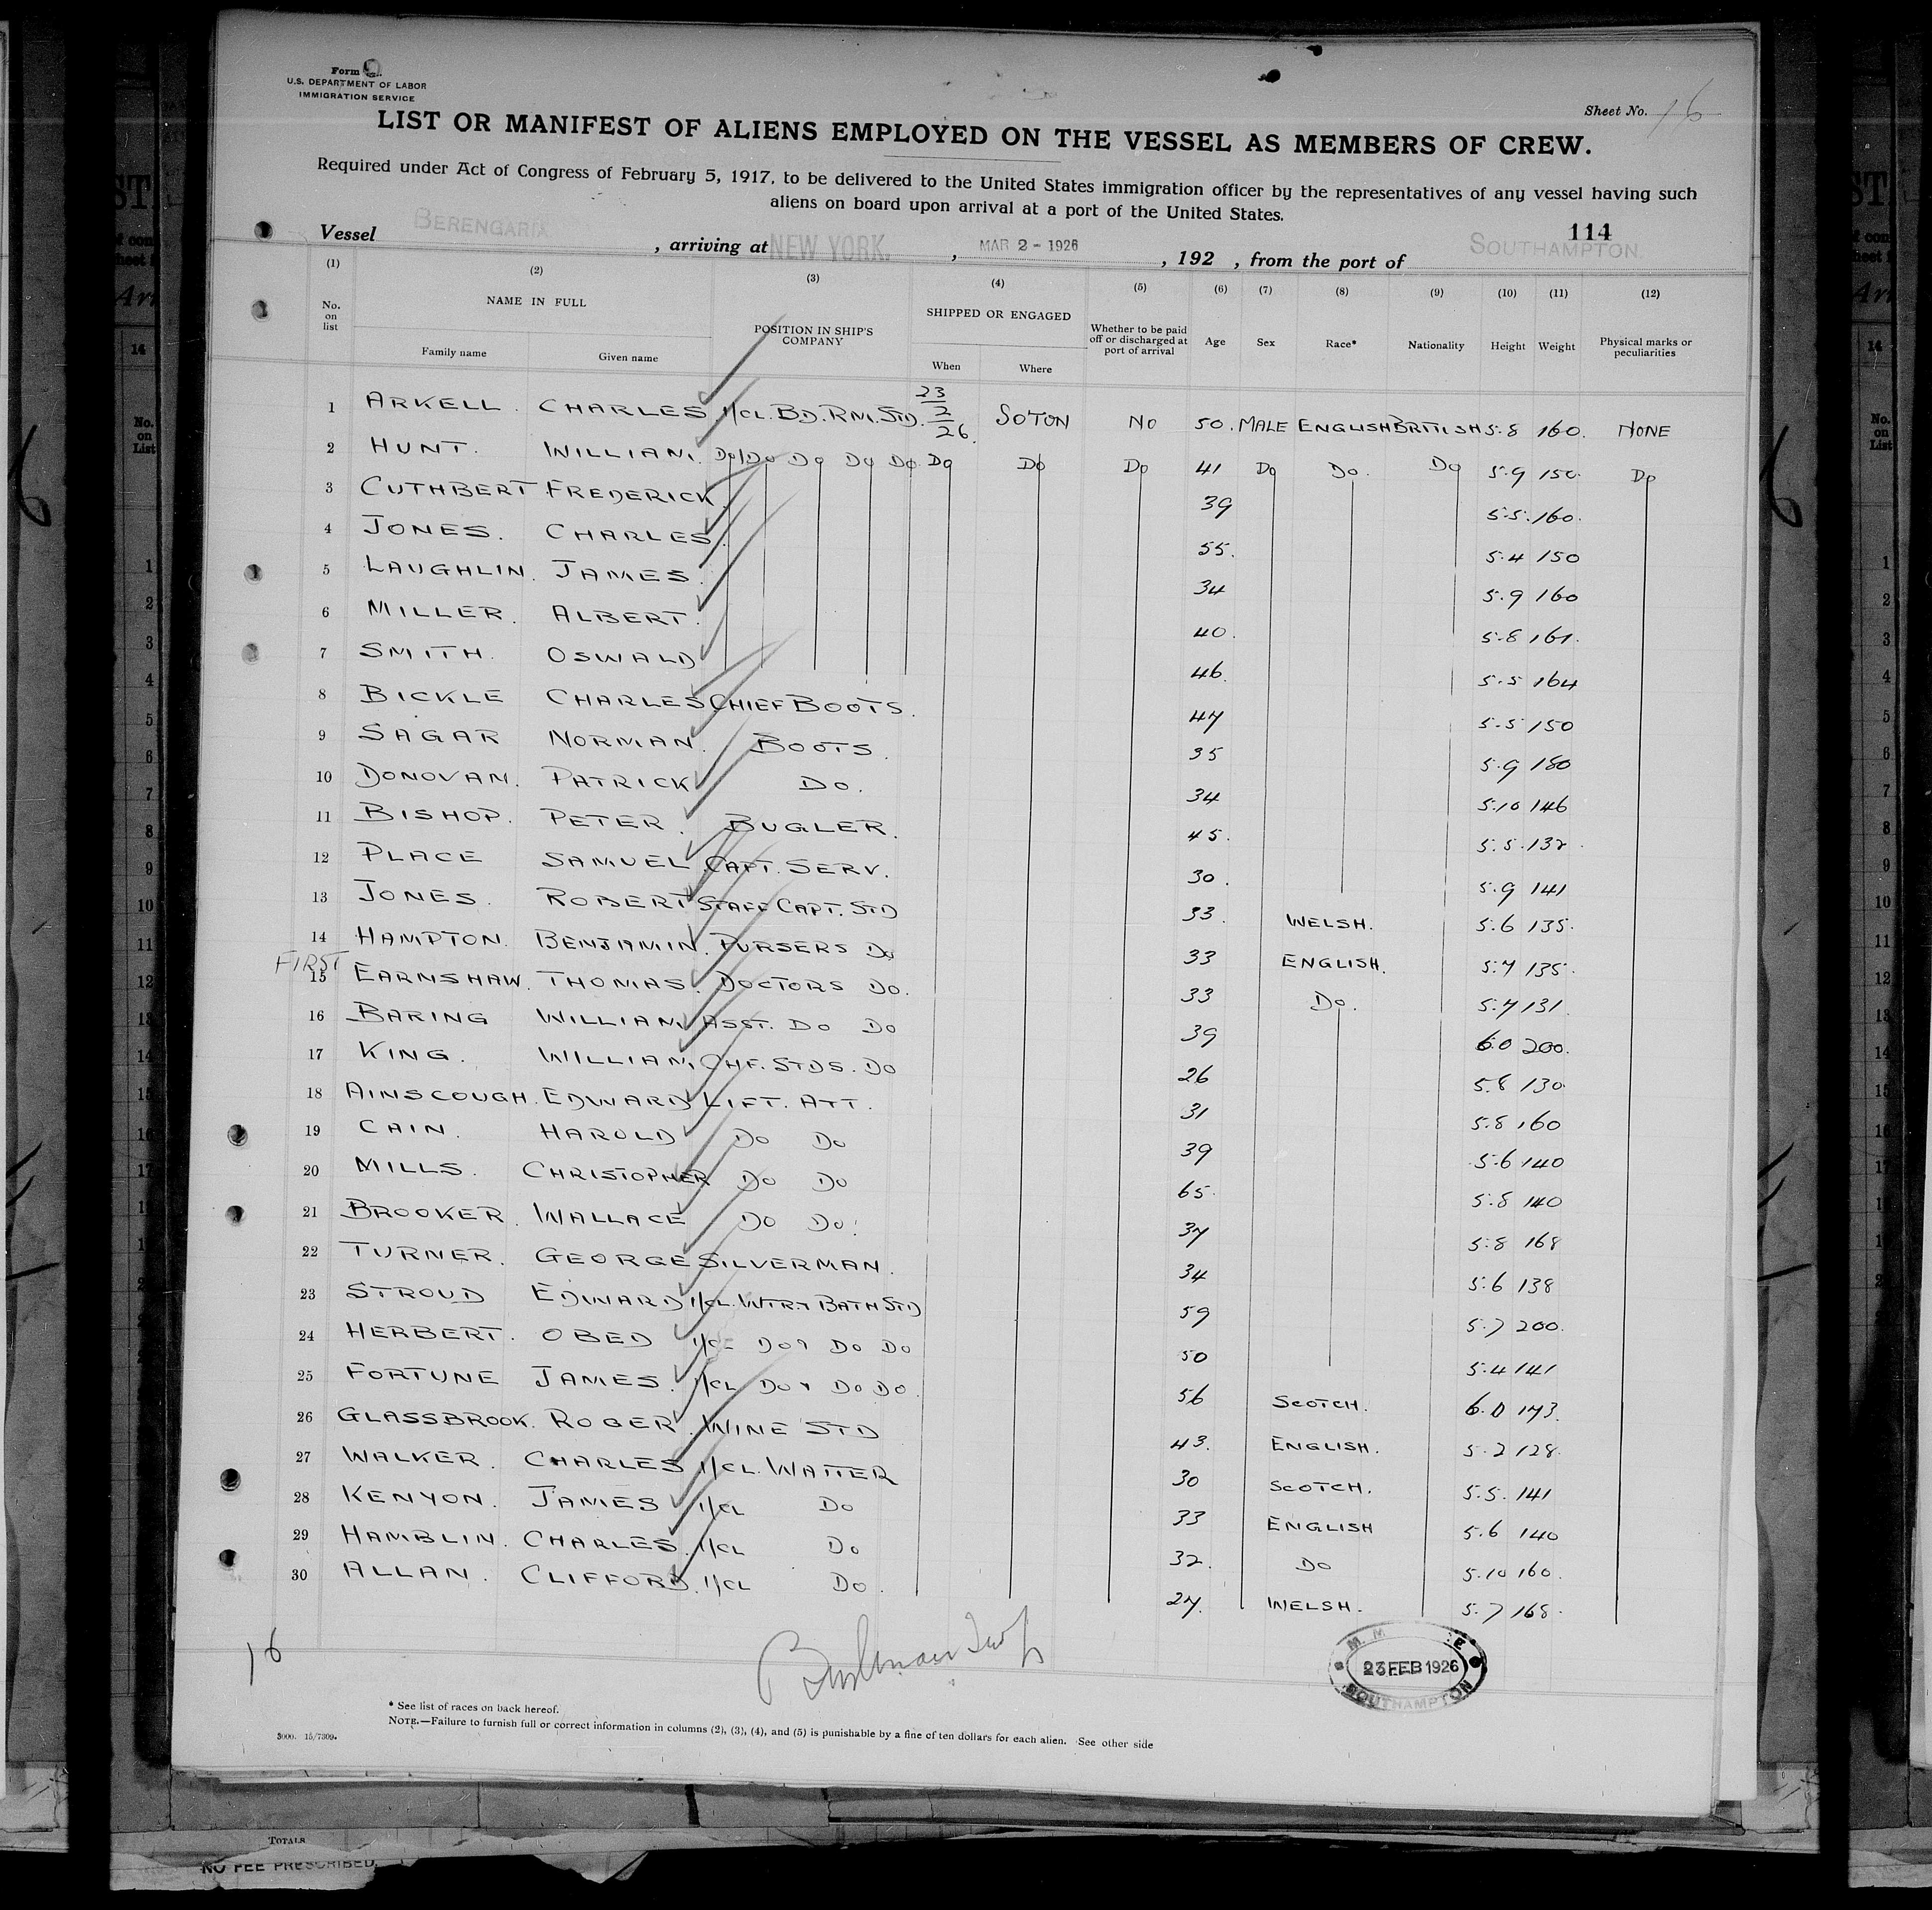 Form
U.S. DEPARTMENT OF LABOR
IMMIGRATION SERVICE
Sheet No. 16
LIST OR MANIFEST OF ALIENS EMPLOYED ON THE VESSEL AS MEMBERS OF CREW.
Required under Act of Congress of February 5, 1917, to be delivered to the United States immigration officer by the representatives of any vessel having such
aliens on board upon arrival at a port of the United States.
114
Vessel BERENGARIA, arriving at NEW YORK, MAR 2 - 1926, 192 , from the port of SOUTHAMPTON
(1) (2) (3) (4) (5) (6) (7) (8) (9) (10) (11) (12)
No. on list NAME IN FULL POSITION IN SHIP'S COMPANY SHIPPED OR ENGAGED Whether to be paid off or discharged at port of arrival Age Sex Race* Nationality Height Weight Physical marks or peculiarities
Family name Given name When Where
1 ARKELL. CHARLES 1/CL. BD. RM. STD. 23/2/26 SOTON NO 50. MALE ENGLISH BRITISH 5.8 160. NONE
2 HUNT. WILLIAM. Do/Do Do Do Do Do Do Do 41 Do Do. Do 5.9 150. Do
3 CUTHBERT FREDERICK. 39 5.5. 160.
4 JONES. CHARLES. 55. 5.4 150
5 LAUGHLIN. JAMES. 34 5.9 160
6 MILLER. ALBERT. 40. 5.8 161.
7 SMITH. OSWALD 46. 5.5 164
8 BICKLE CHARLES CHIEF BOOTS. 47 5.5 150
9 SAGAR NORMAN. BOOTS. 35 5.9 180
10 DONOVAN. PATRICK DO. 34 5.10 146
11 BISHOP. PETER. BUGLER. 45. 5.5. 132.
12 PLACE SAMUEL CAPT. SERV. 30. 5.9 141
13 JONES. ROBERT STAFF CAPT. STD 33. WELSH. 5.6 135.
14 HAMPTON. BENJAMIN. PURSERS DO 33 ENGLISH. 5.7 135.
FIRST
15 EARNSHAW. THOMAS. DOCTORS DO. 33 DO. 5.7 131.
16 BARING WILLIAM. ASST. DO DO 39 6.0 200.
17 KING. WILLIAM, CHF. STDS. DO 26 5.8 130.
18 AINSCOUGH. EDWARD LIFT. ATT. 31 5.8 160
19 CAIN. HAROLD DO DO 39 5.6 140
20 MILLS. CHRISTOPHER DO DO 65. 5.8 140
21 BROOKER. WALLACE DO DO. 37 5.8 168
22 TURNER. GEORGE SILVERMAN. 34 5.6 138
23 STROUD EDWARD 1/CL. WTR. & BATH STD 59 5.7 200.
24 HERBERT. OBED 1/CL DO & DO DO 50 5.4 141
25 FORTUNE JAMES. 1/CL DO & DO DO. 56 SCOTCH. 6.0 173.
26 GLASSBROOK. ROGER. WINE STD 43. ENGLISH. 5.2 128.
27 WALKER. CHARLES 1/CL. WAITER 30 SCOTCH. 5.5. 141
28 KENYON. JAMES 1/CL DO 33 ENGLISH 5.6 140
29 HAMBLIN. CHARLES. 1/CL DO 32. DO 5.10 160.
30 ALLAN. CLIFFORD. 1/CL DO. 27. WELSH. 5.7 168.
16
23 FEB 1926
SOUTHAMPTON
* See list of races on back hereof.
NOTE.—Failure to furnish full or correct information in columns (2), (3), (4), and (5) is punishable by a fine of ten dollars for each alien. See other side
3000. 15/7309.
TOTALS
NO FEE PRESCRIBED.